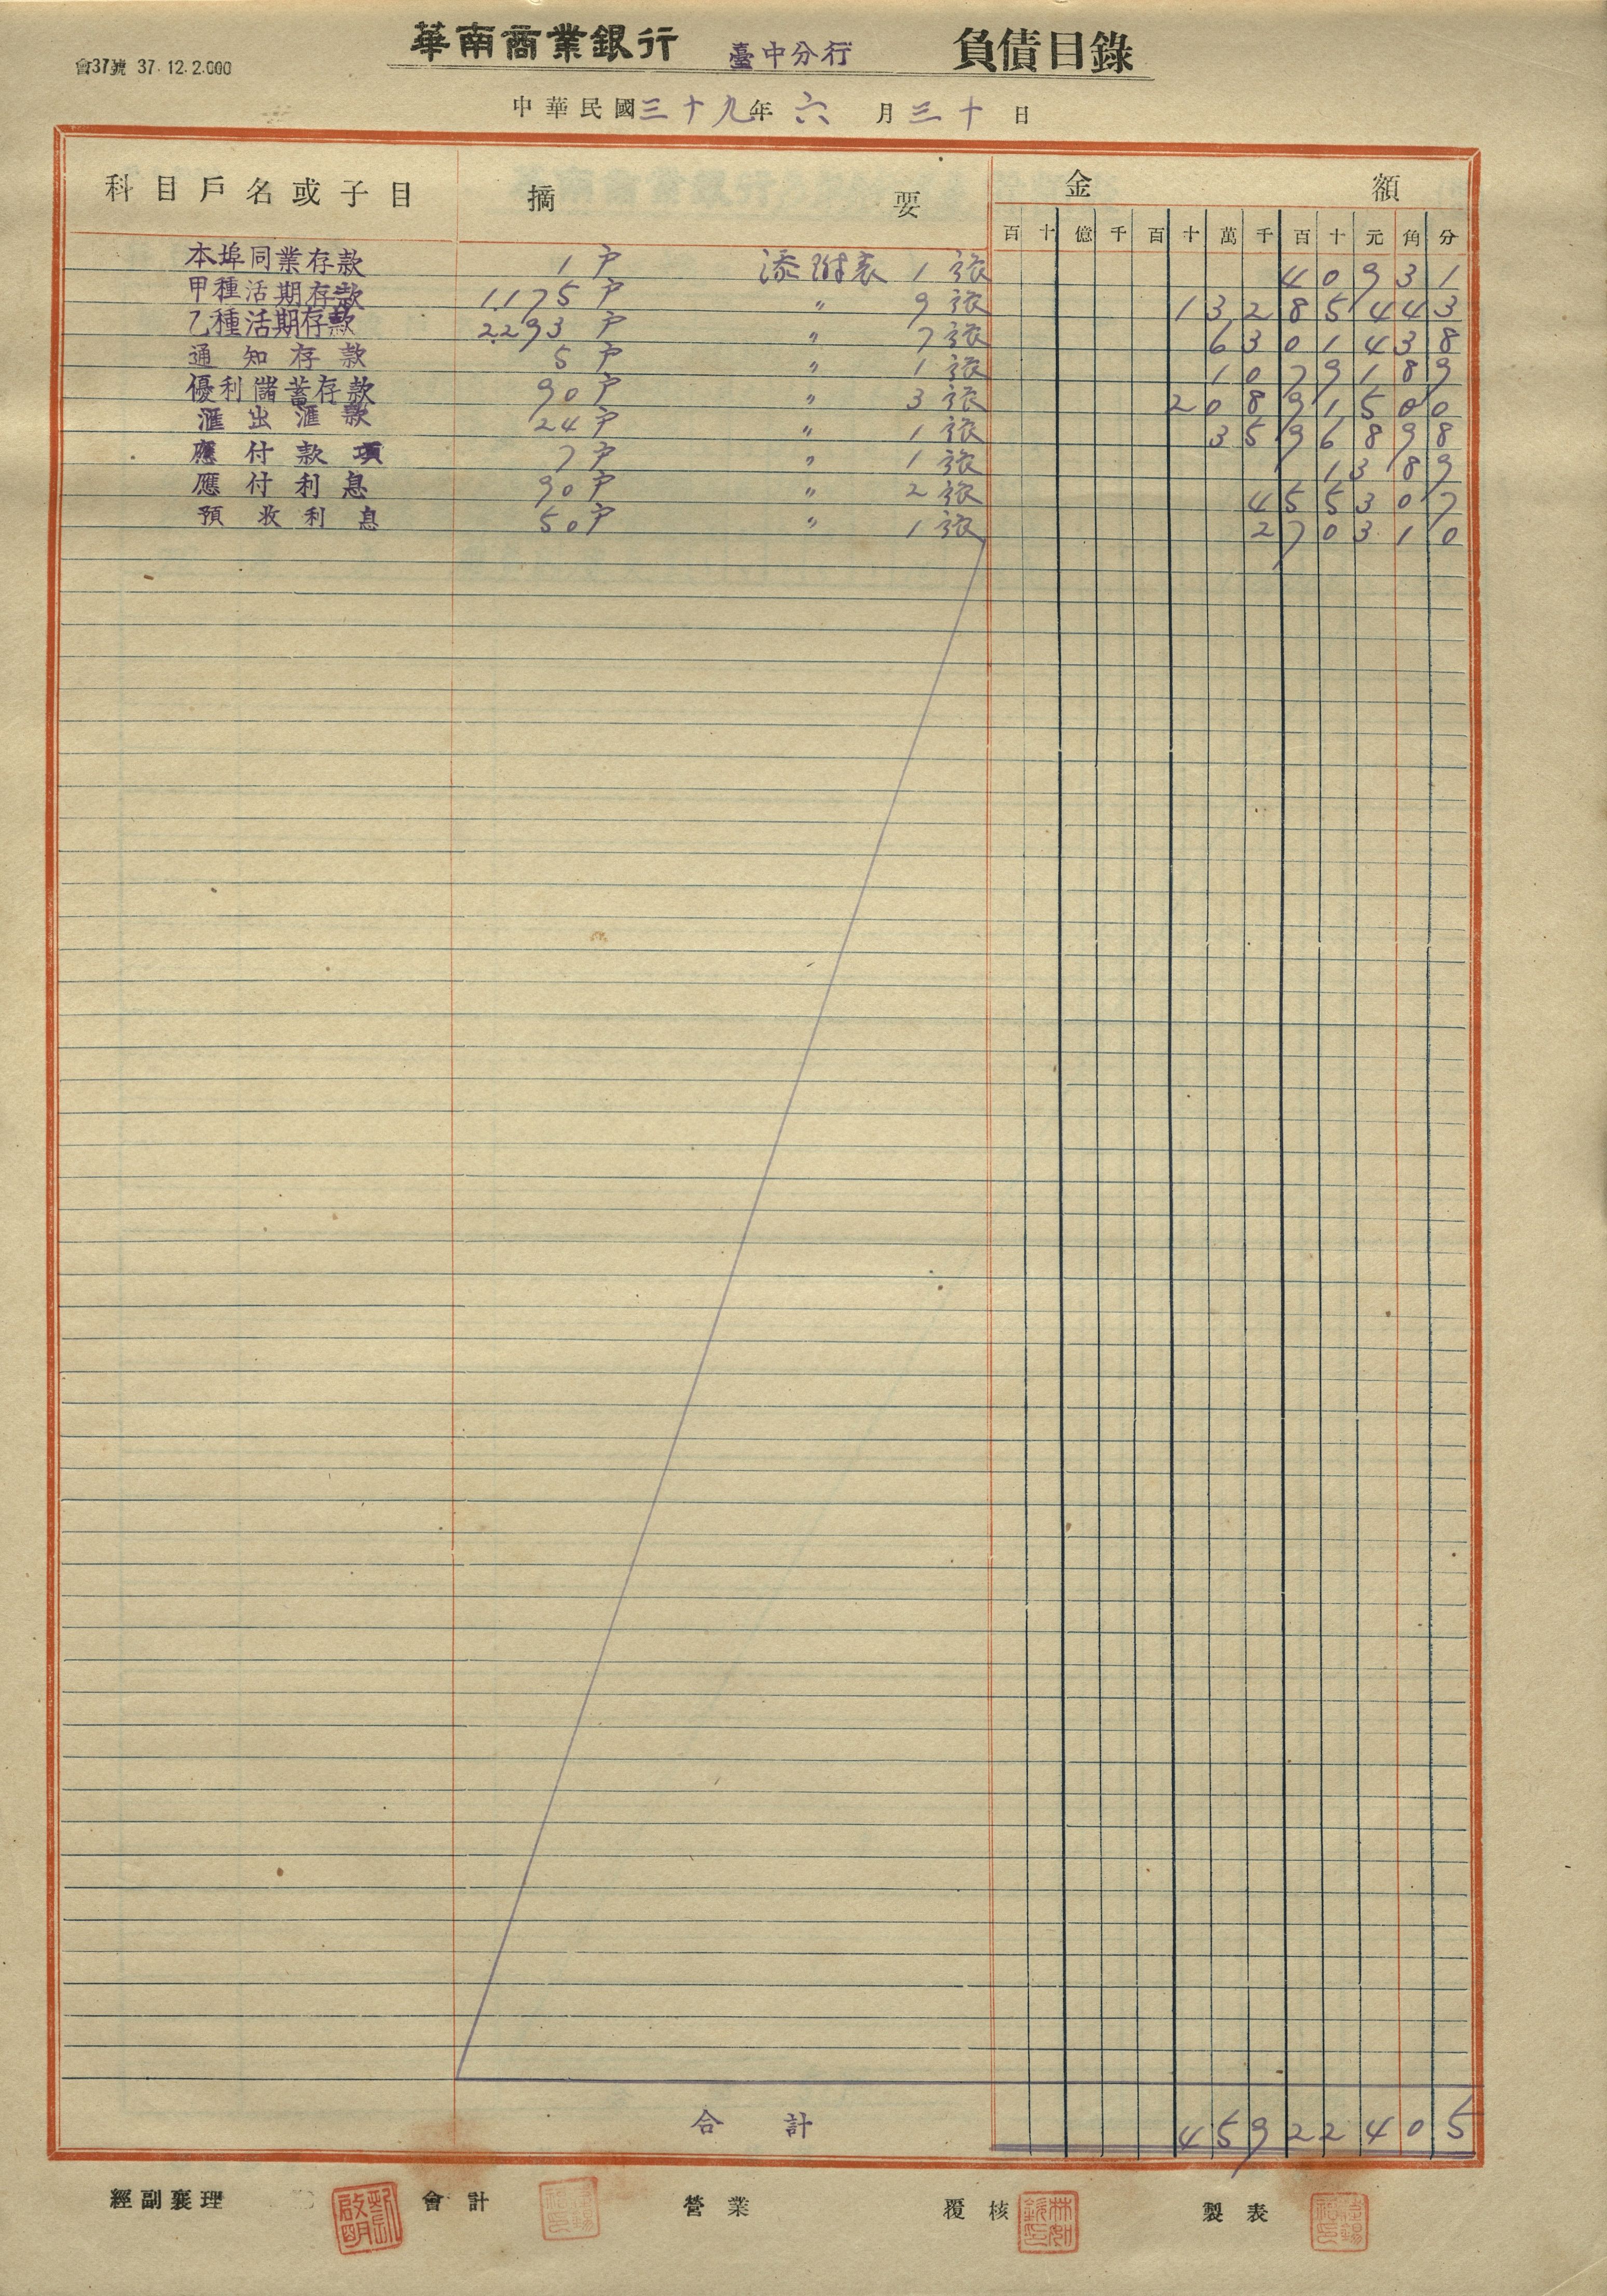 會37號 37.12.2.000
華南商業銀行 臺中分行 負債目錄
中華民國三十九年六月三十日
科目戶名或子目 摘要 金額
百 十 億 千 百 十 萬 千 百 十 元 角 分
本埠同業存款 1戶 添附表 1張 40931
甲種活期存款 1175戶 〃 9張 13285443
乙種活期存款 2293戶 〃 7張 6301438
通知存款 5戶 〃 1張 1079189
優利儲蓄存款 90戶 〃 3張 20891500
滙出滙款 24戶 〃 1張 3596898
應付款項 7戶 〃 1張 1389
應付利息 90戶 〃 2張 455307
預收利息 50戶 〃 1張 270310
合計 45922405
經副襄理 會計 營業 覆核 製表